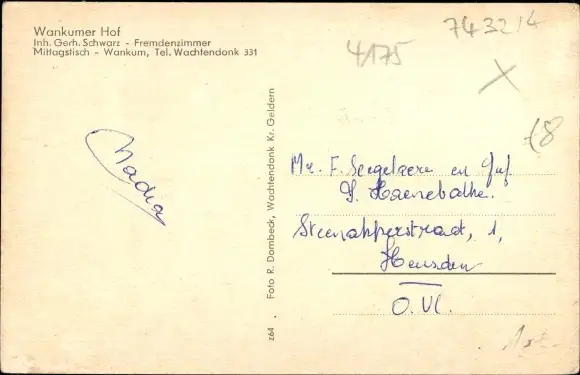 Wankumer Hof
Inh. Gerh. Schwarz - Fremdenzimmer
Mittagstisch - Wankum, Tel. Wachtendonk 331
7432/4
4/175
£8
Nadia
Foto R. Dombeck, Wachtendonk Kr. Geldern
z64
Mr. F. Seegelaere en Juf.
S. Haerebathe.
Steenakkerstraat, 1,
Heusden
O. Vl.